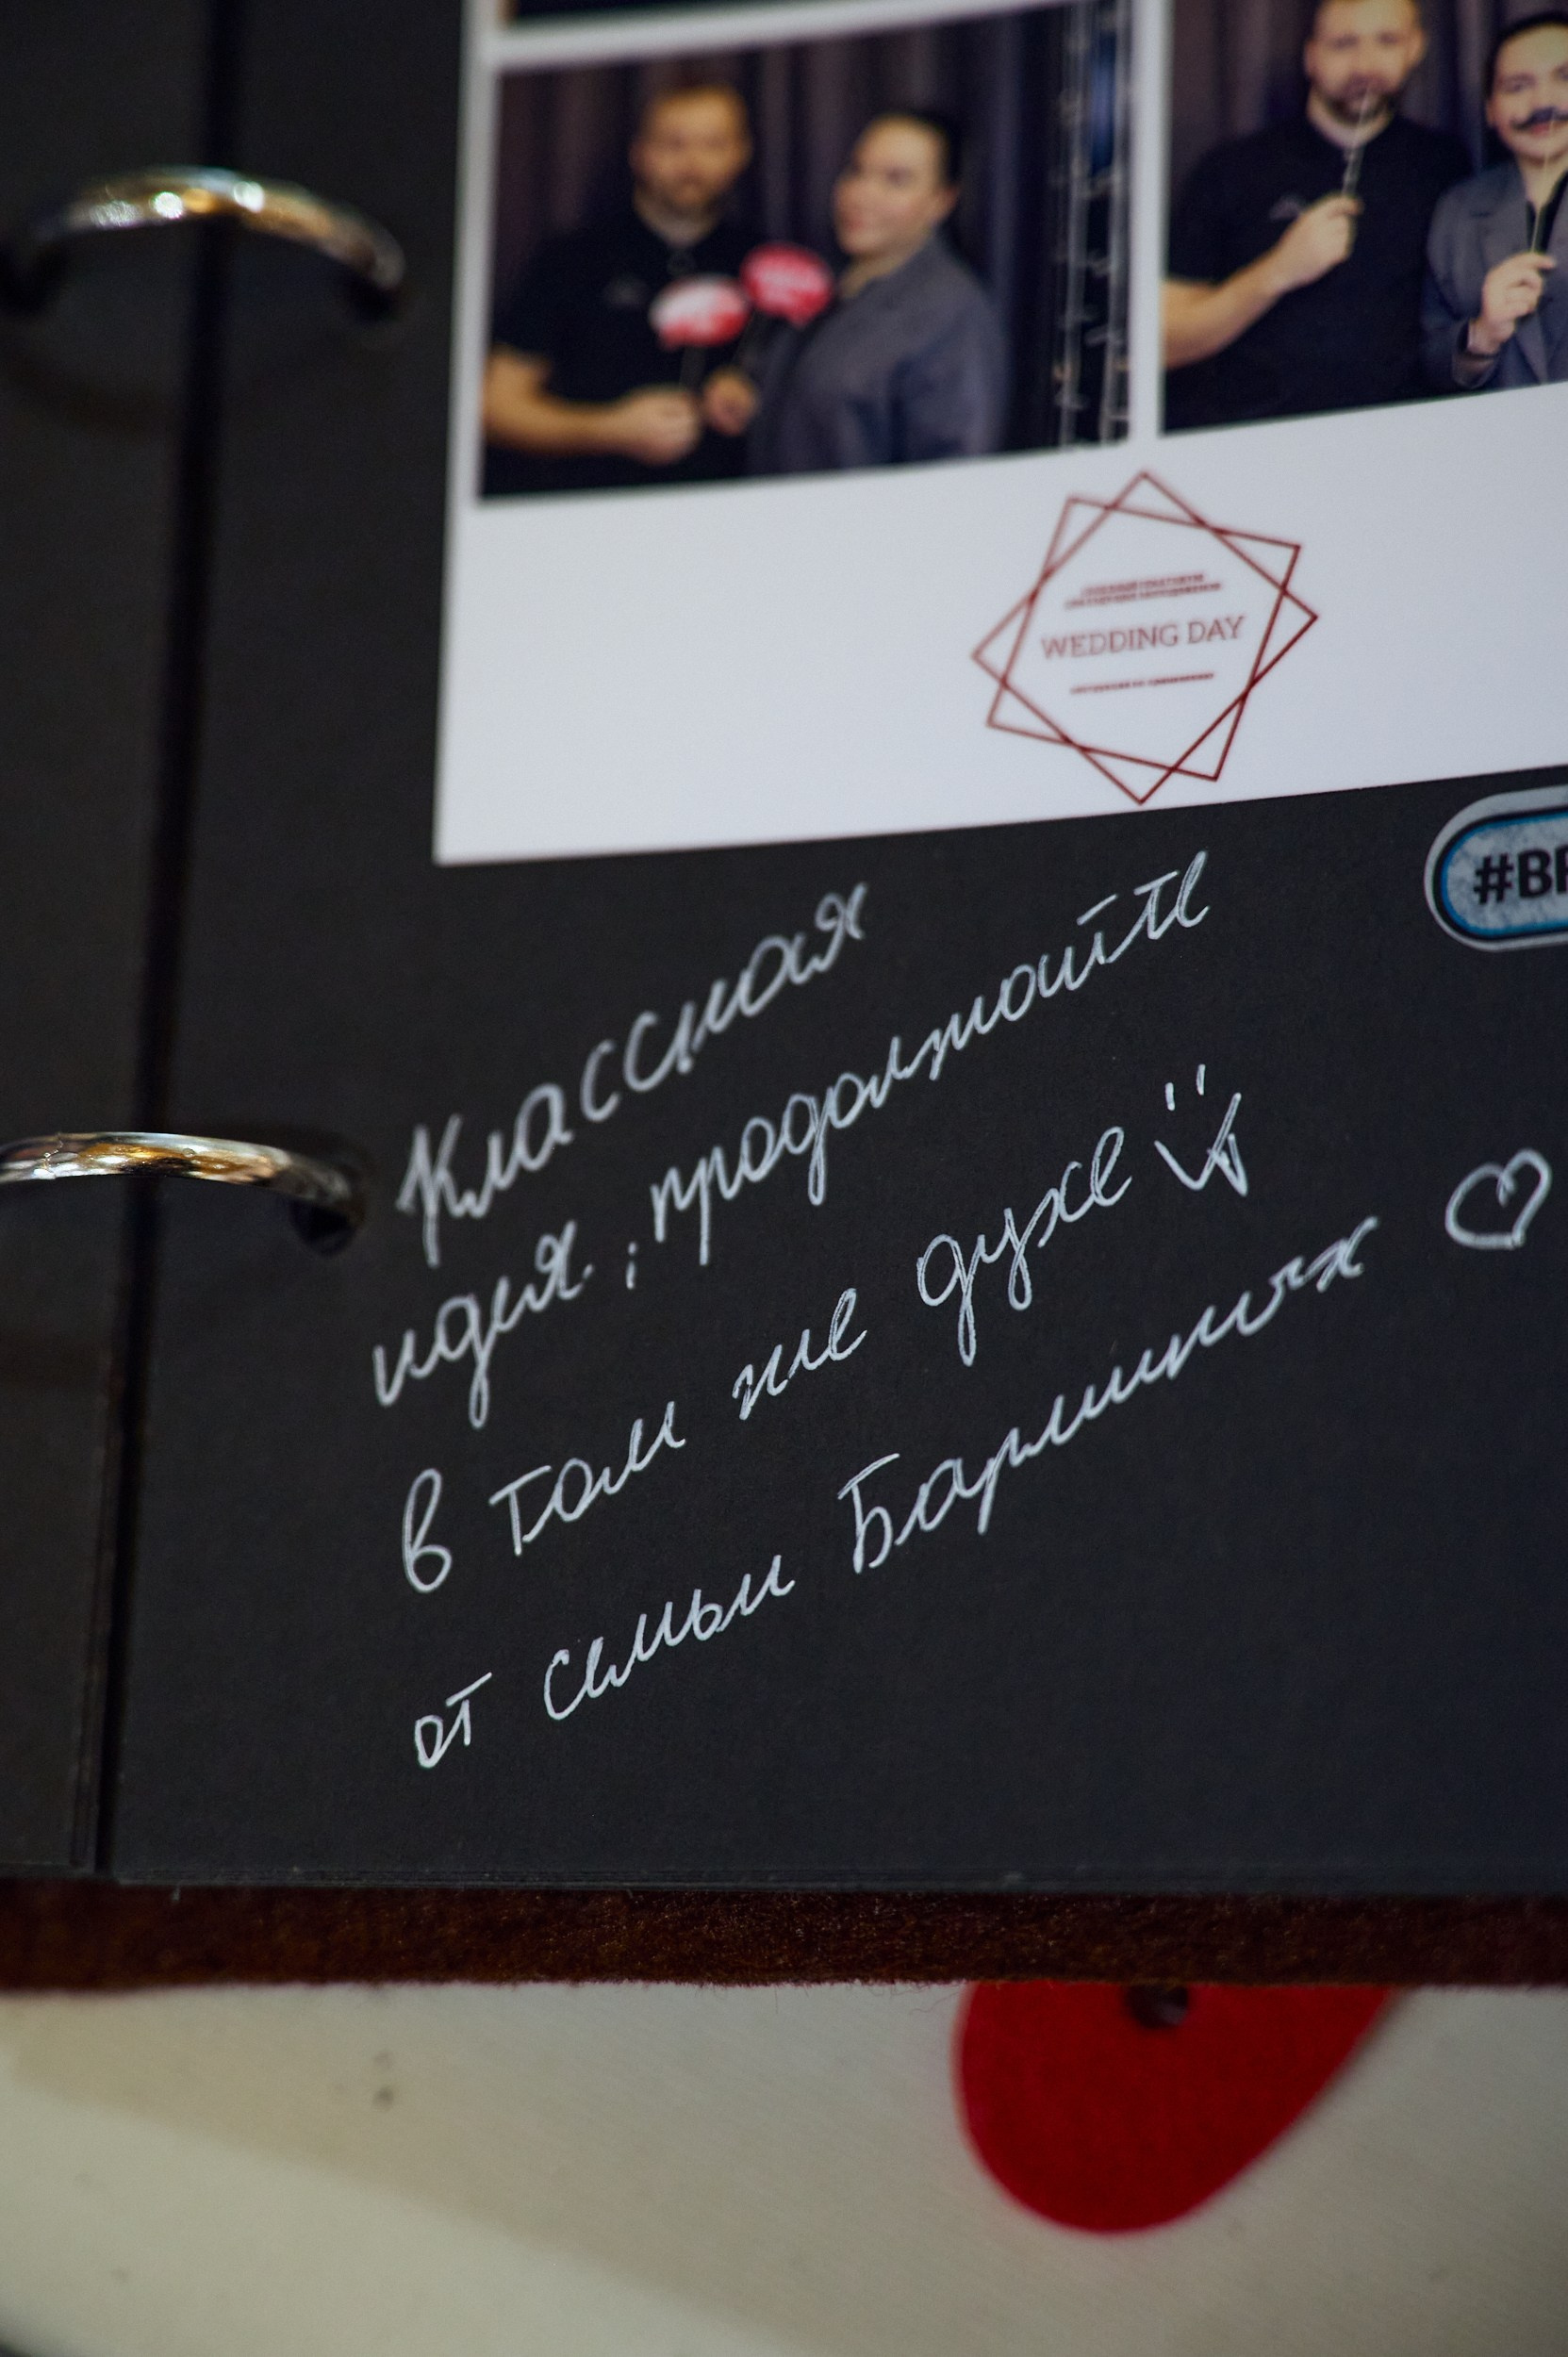 WEDDING DAY
#BR
Классная
идея, продолжайте
в том же духе
от семьи Барминых